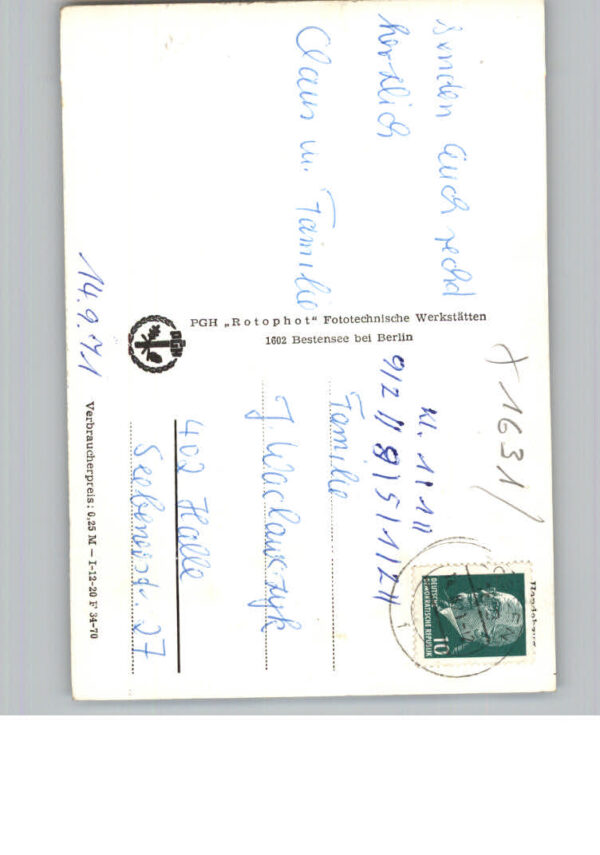 senden Euch recht
herzlich
Claus u. Familie
14.9.71
PGH „Rotophot“ Fototechnische Werkstätten
1602 Bestensee bei Berlin
PGH
Verbraucherpreis: 0,25 M — I-12-20 F 34-70
1631
Kl. 1/1//
9/2//8/5/1/2//
Familie
J. Waclawczyk
402 Halle
Seebenerstr. 27
DEUTSCHE
DEMOKRATISCHE REPUBLIK
10